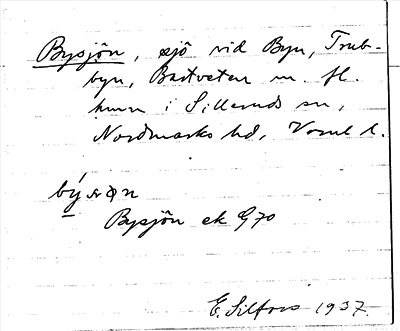 Bysjön, sjö vid Byn, Trub-
byn, Bastveten m. fl.
hmn i Silleruds sn,
Nordmarks hd, Vrml l.
Bysjön ek G 70
E. Silfors 1937